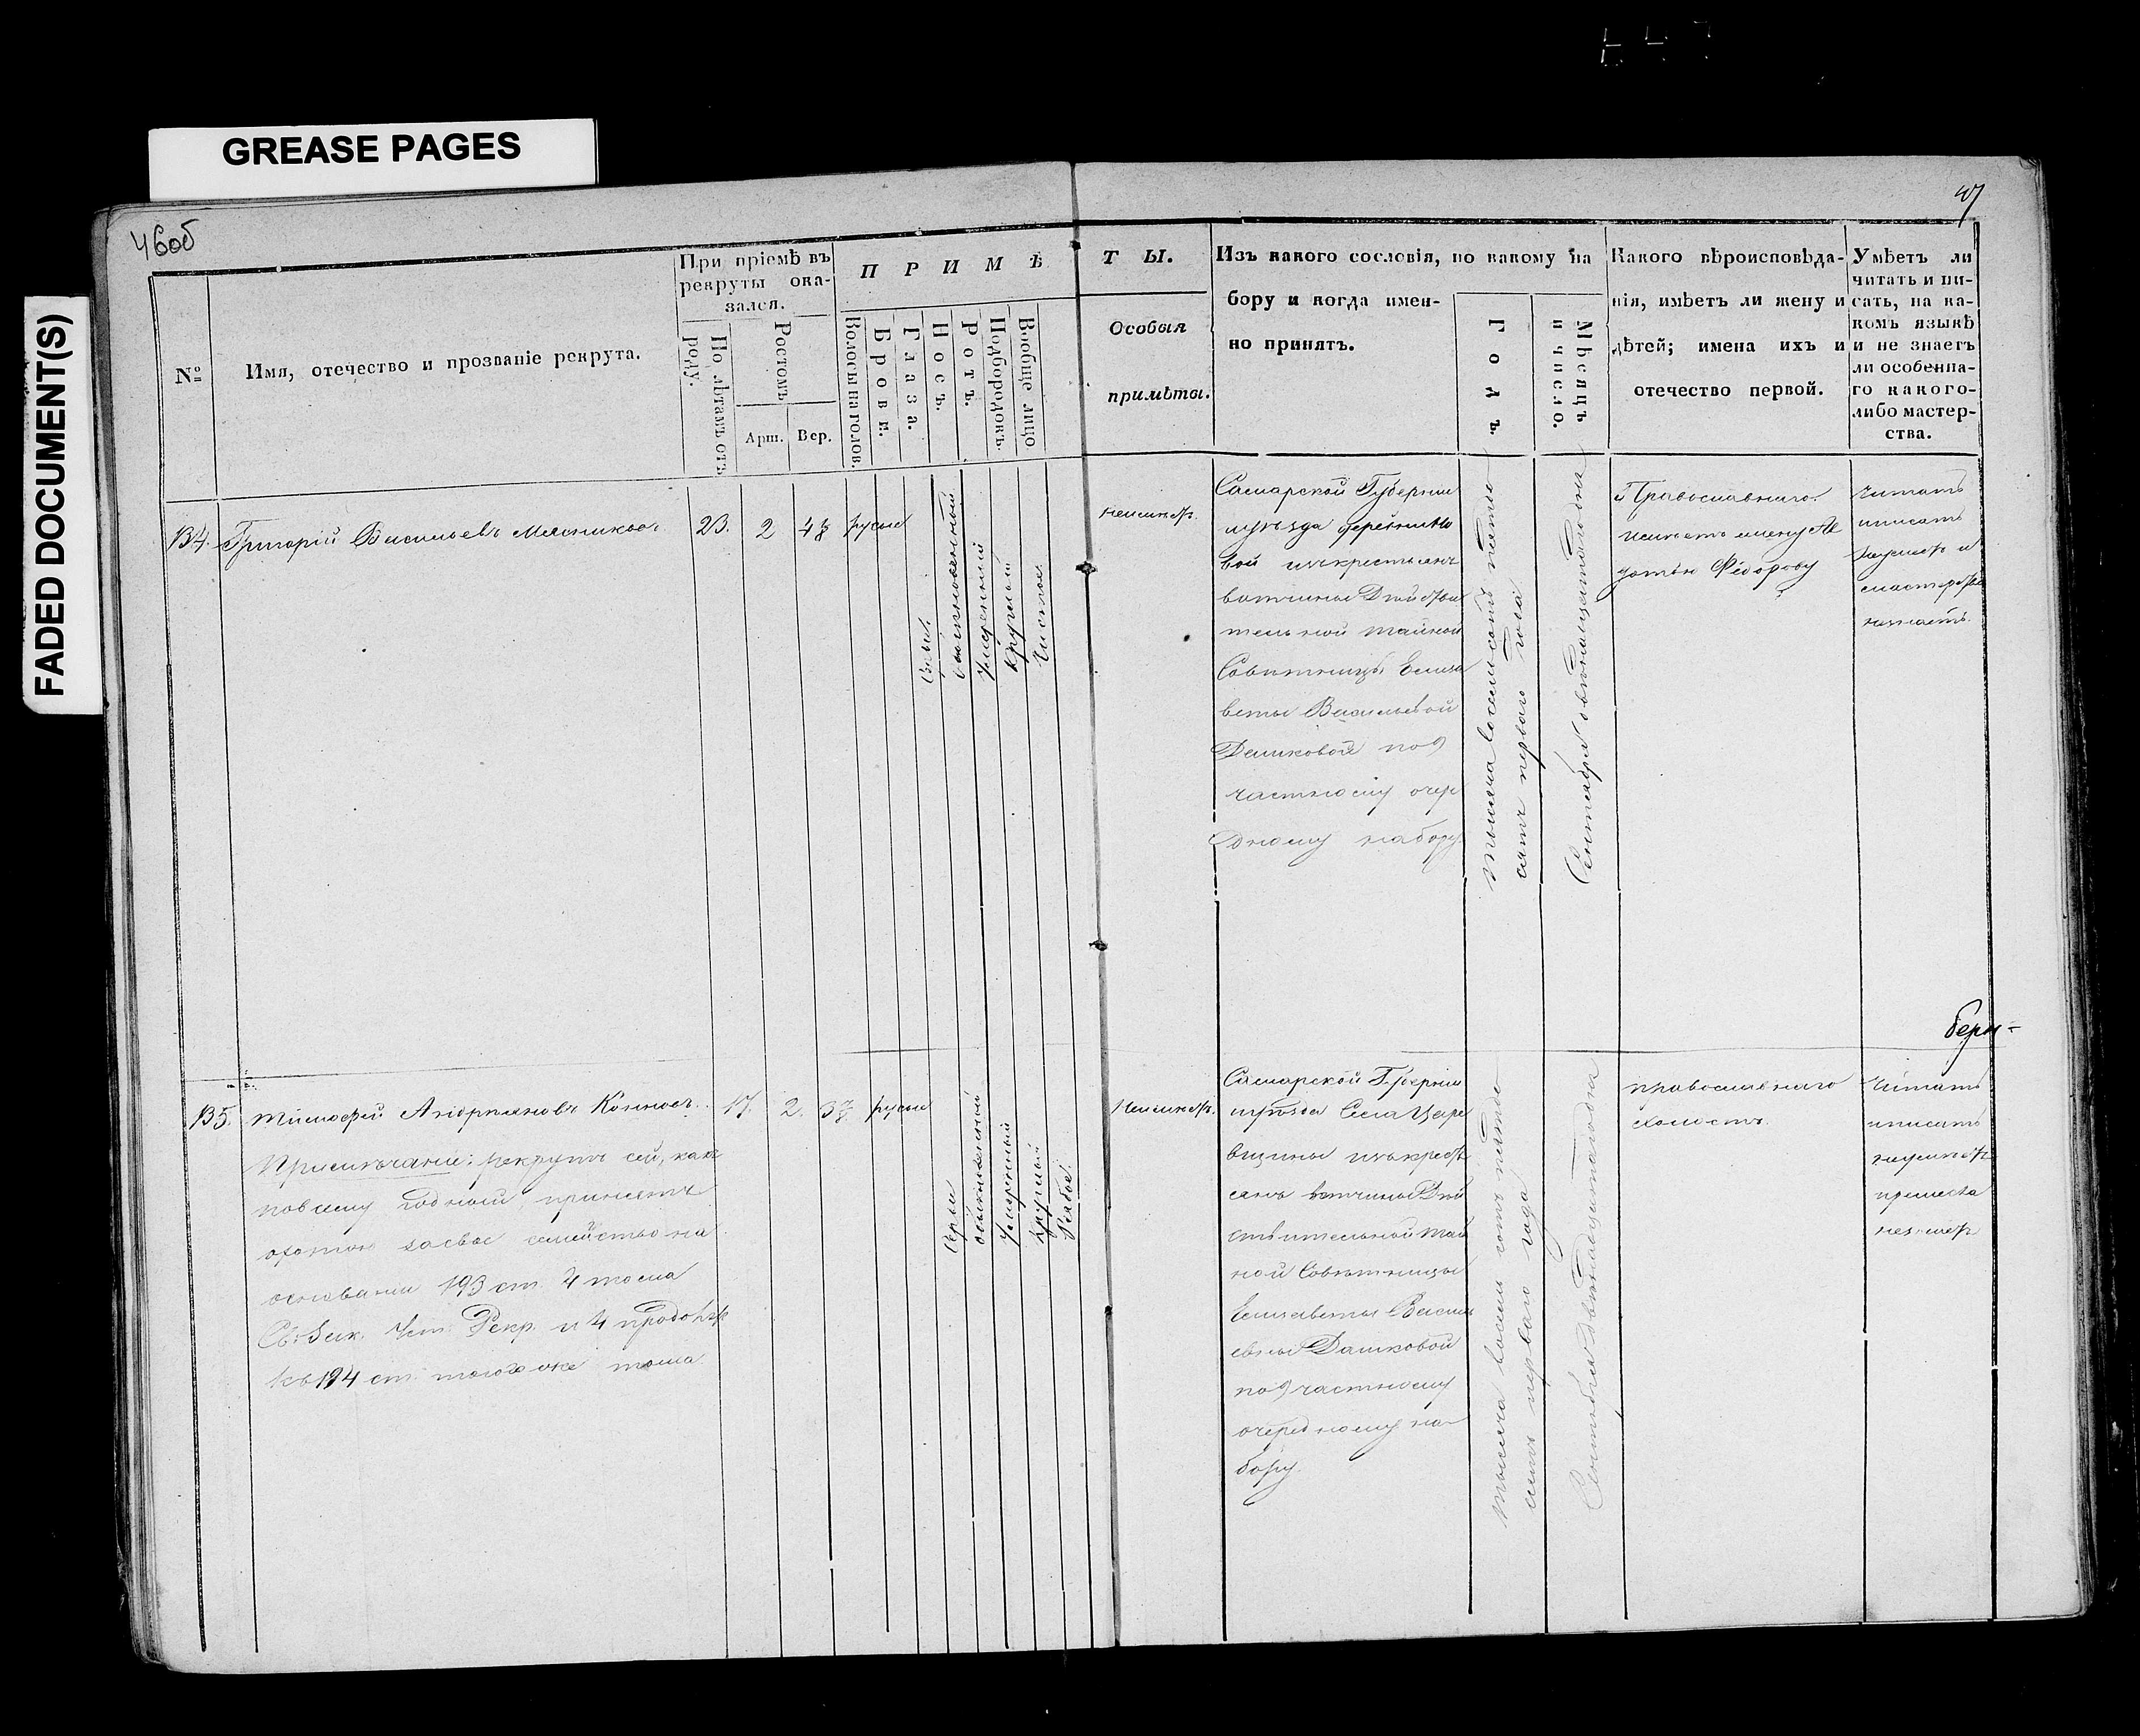 GREASE PAGES
FADED DOCUMENT(S)
46об
47
№
Имя, отечество и прозваніе рекрута.
При пріемѣ въ
рекруты ока-
зался.
По лѣтамъ отъ
роду.
Ростомъ
Арш.
Вер.
П Р И М Ѣ
Волосы на голов.
Брови.
Глаза.
Носъ.
Ротъ.
Подбородокъ.
Вообще лицо
Т Ы.
Особыя
примѣты.
Изъ какого сословія, по какому на
бору и когда имен-
но принятъ.
Годъ.
Мѣсяцъ
и число.
Какого вѣроисповѣда-
нія, имѣетъ ли жену и
дѣтей; имена ихъ и
отечество первой.
Умѣетъ ли
читать и пи-
сать, на ка-
комъ языкѣ
и не знаетъ
ли особенна-
го какого-
либо мастер-
ства.
134.
Григорій Васильевъ Мясниковъ
23.
2
4⅛
русые
обыкновенный
умѣренный
круглый
чистое
неимѣетъ.
Самарской Губерніи
иуѣзда деревни
вой изъ крестьянъ
вотчины Дѣйстви
тельной тайной
Совѣтницы Елиза
веты Васильевой
Дашковой по 9
частному очере
дному набору
тысяча восемьсотъ пятьде
сятъ перваго года
Сентября
Православнаго
имѣетъ жену
Федорову
читать
иписать
неумѣетъ и
мастерства
незнаетъ.
бери=
135.
Тимофей Андреяновъ
17.
2.
русые
Примѣчаніе: рекрутъ сей, какъ
повсему годный, принятъ
охотою засвое семейство на
основаніи 193 ст. 4 тома
Св. Зак. Уст. Рекр. и 4 продолж
къ 194 ст. тогоже тома.
Сѣрые
обыкновенный
умѣренный
круглый
Рябое.
Неимѣетъ.
Самарской Губерніи
иуѣзда Села Царе
вщины изъ крест
янъ вотчины Дѣй
ствительной тай
ной Совѣтницы
Елизаветы Василь
евны Дашковой
по 9 частному
очередному на
бору.
тысяча восемьсотъ пятьде
сятъ перваго года
Сентября
православнаго
холостъ.
Читать
иписать
неумѣетъ
ремесла
незнаетъ